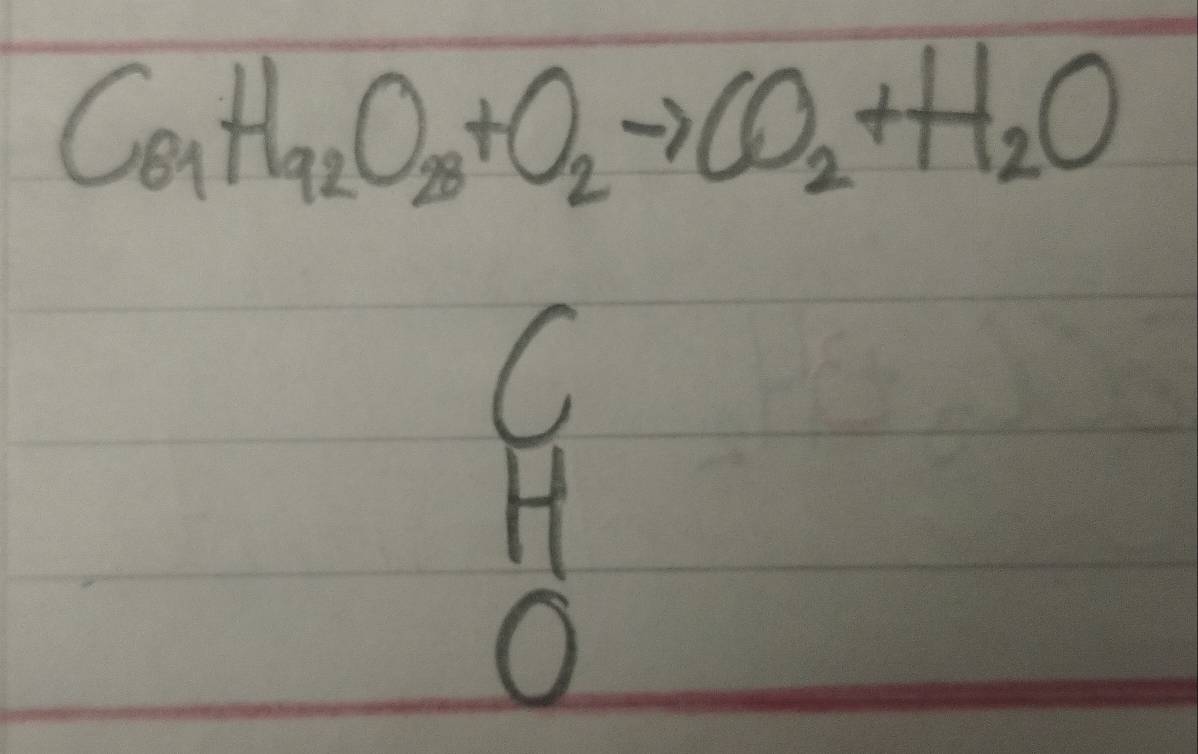 C₈₁H₉₂O₂₈+O₂→CO₂+H₂O
C
H
O